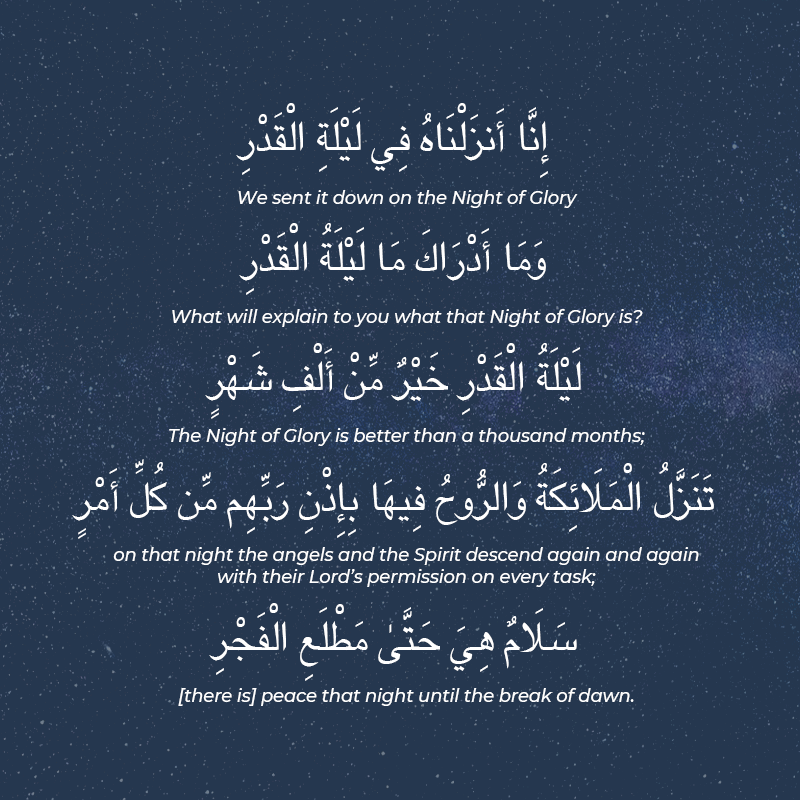 إِنَّا أَنزَلْنَاهُ فِي لَيْلَةِ الْقَدْرِ
We sent it down on the Night of Glory
وَمَا أَدْرَاكَ مَا لَيْلَةُ الْقَدْرِ
What will explain to you what that Night of Glory is?
لَيْلَةُ الْقَدْرِ خَيْرٌ مِّنْ أَلْفِ شَهْرٍ
The Night of Glory is better than a thousand months;
تَنَزَّلُ الْمَلَائِكَةُ وَالرُّوحُ فِيهَا بِإِذْنِ رَبِّهِم مِّن كُلِّ أَمْرٍ
on that night the angels and the Spirit descend again and again
with their Lord’s permission on every task;
سَلَامٌ هِيَ حَتَّىٰ مَطْلَعِ الْفَجْرِ
[there is] peace that night until the break of dawn.